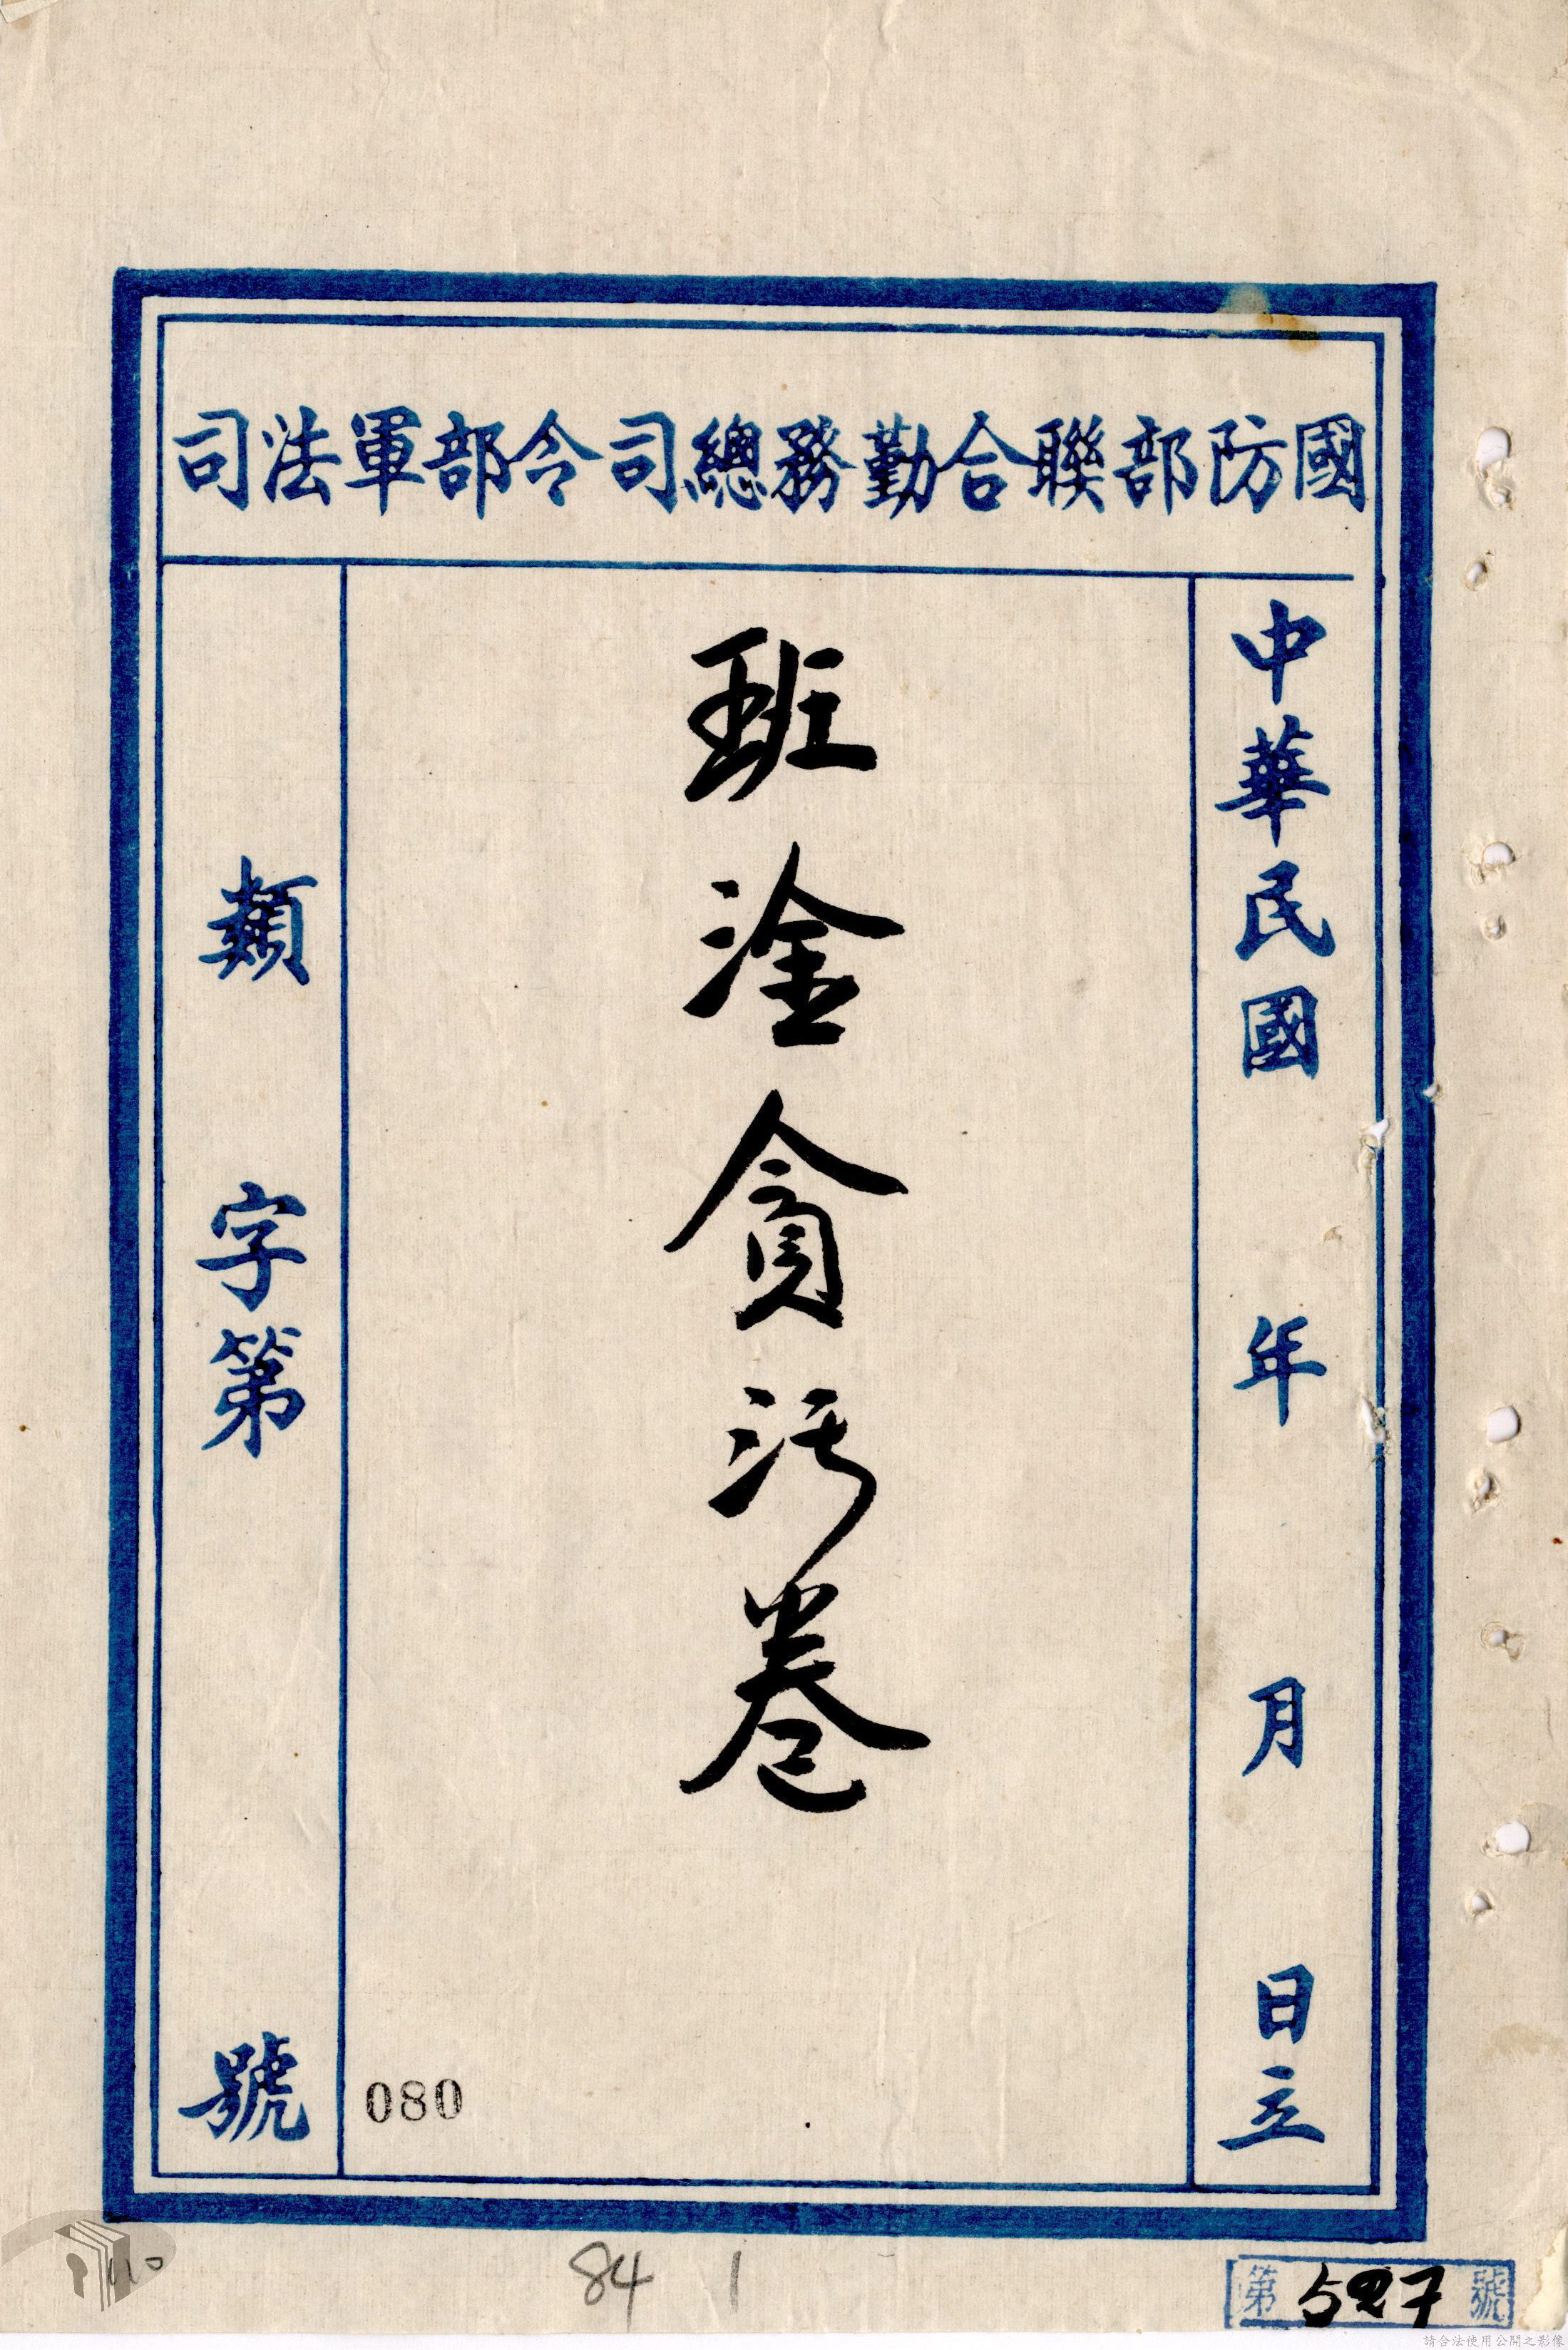 國防部聯合勤務總司令部軍法司
中華民國 年 月 日立
班淦貪污卷
類 字第 號
080
84 1
第527號
請合法使用公開之影像